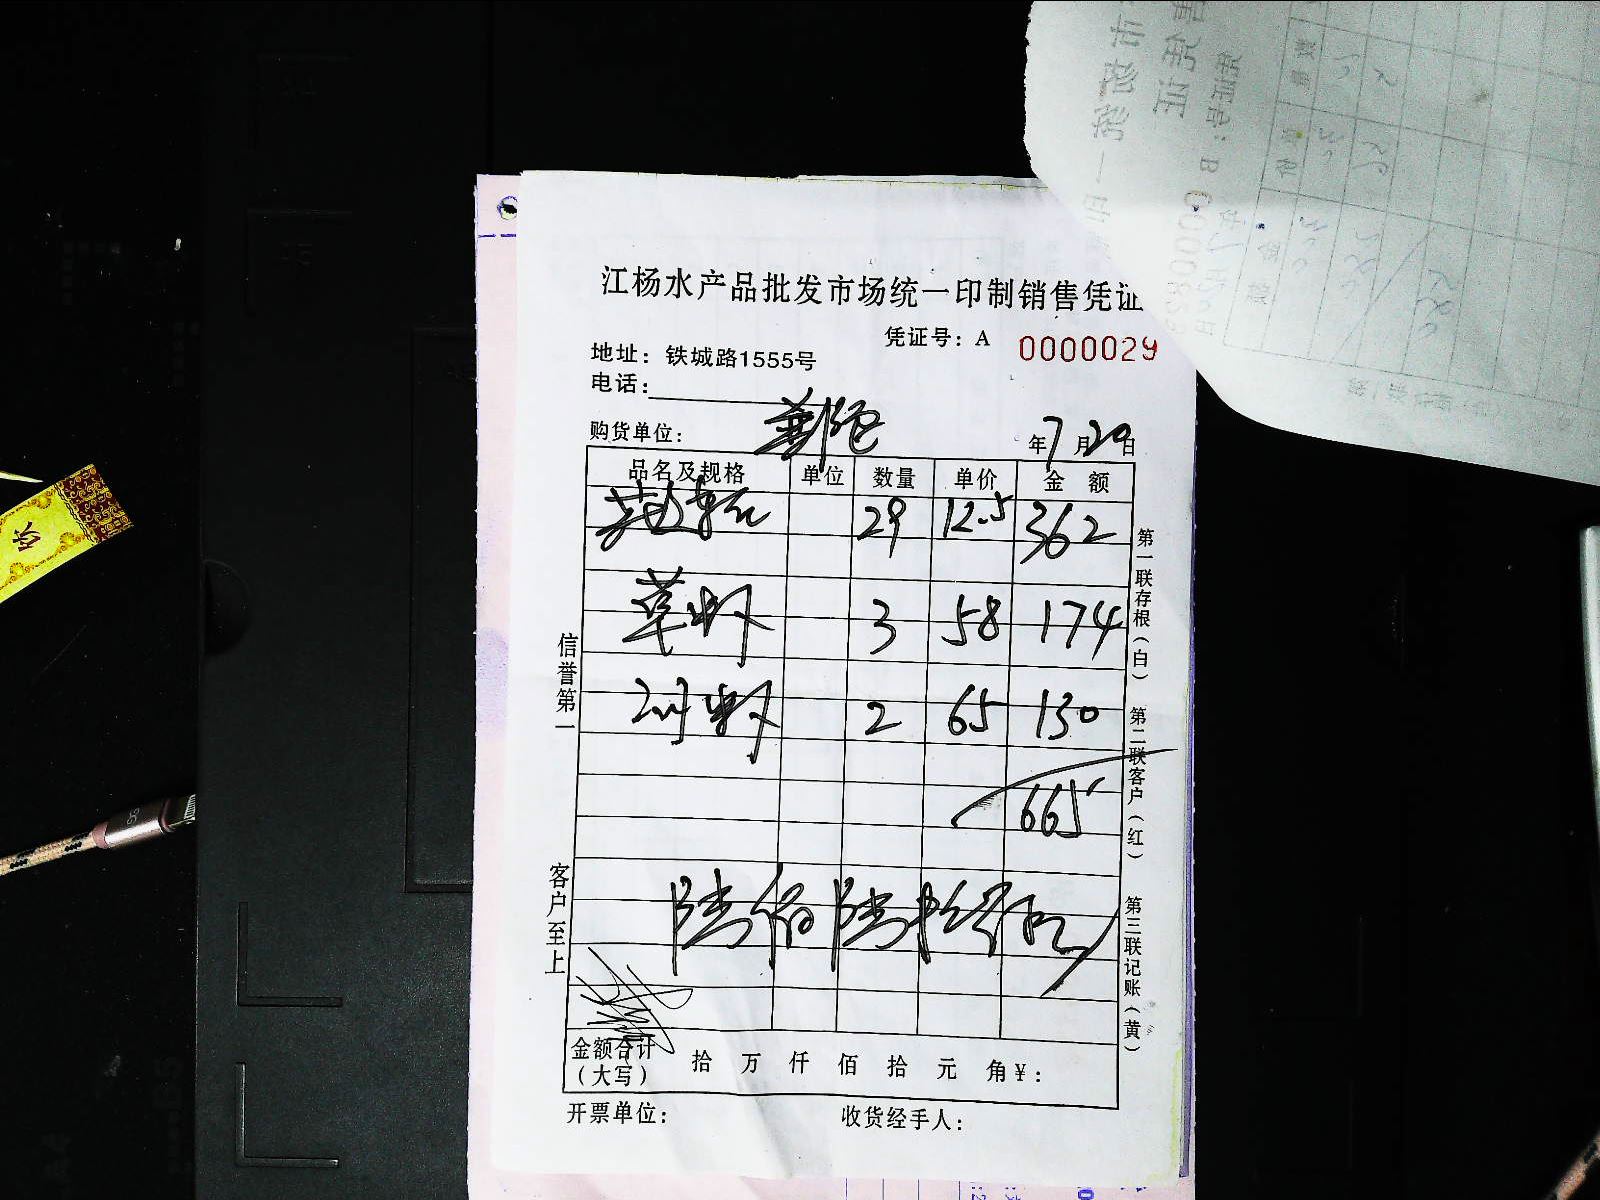 江杨水产品批发市场统一印制销售凭证
凭证号：A 0000029
地址：铁城路1555号
电话：
购货单位： 年7月20日
品名及规格 单位 数量 单价 金 额
29 12.5 362
草虾 3 58 174
虾 2 65 130
665
陆佰陆拾伍元
金额合计（大写） 拾 万 仟 佰 拾 元 角¥：
开票单位： 收货经手人：
信誉第一
客户至上
第一联存根（白）
第二联客户（红）
第三联记账（黄）